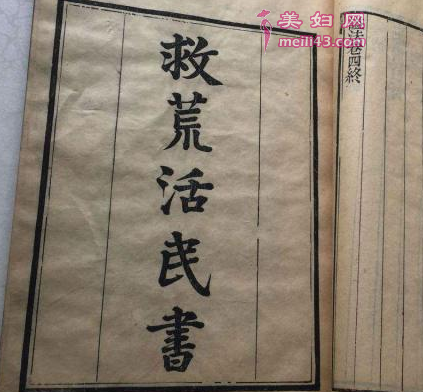 救荒活民書
法卷四終
美妇网
meili43.com